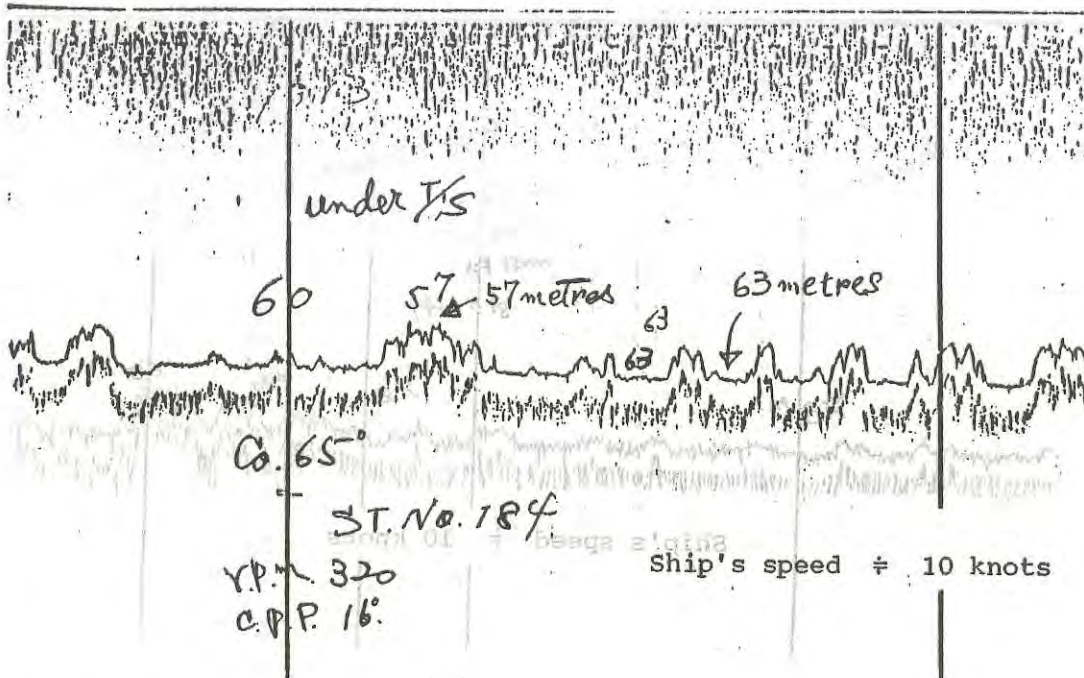 under T/S
60
57
57 metres
63 metres
63
63
Co. 65°
ST. No. 184
r.p.m. 320
C.P.P. 16°.
Ship's speed ≑ 10 knots